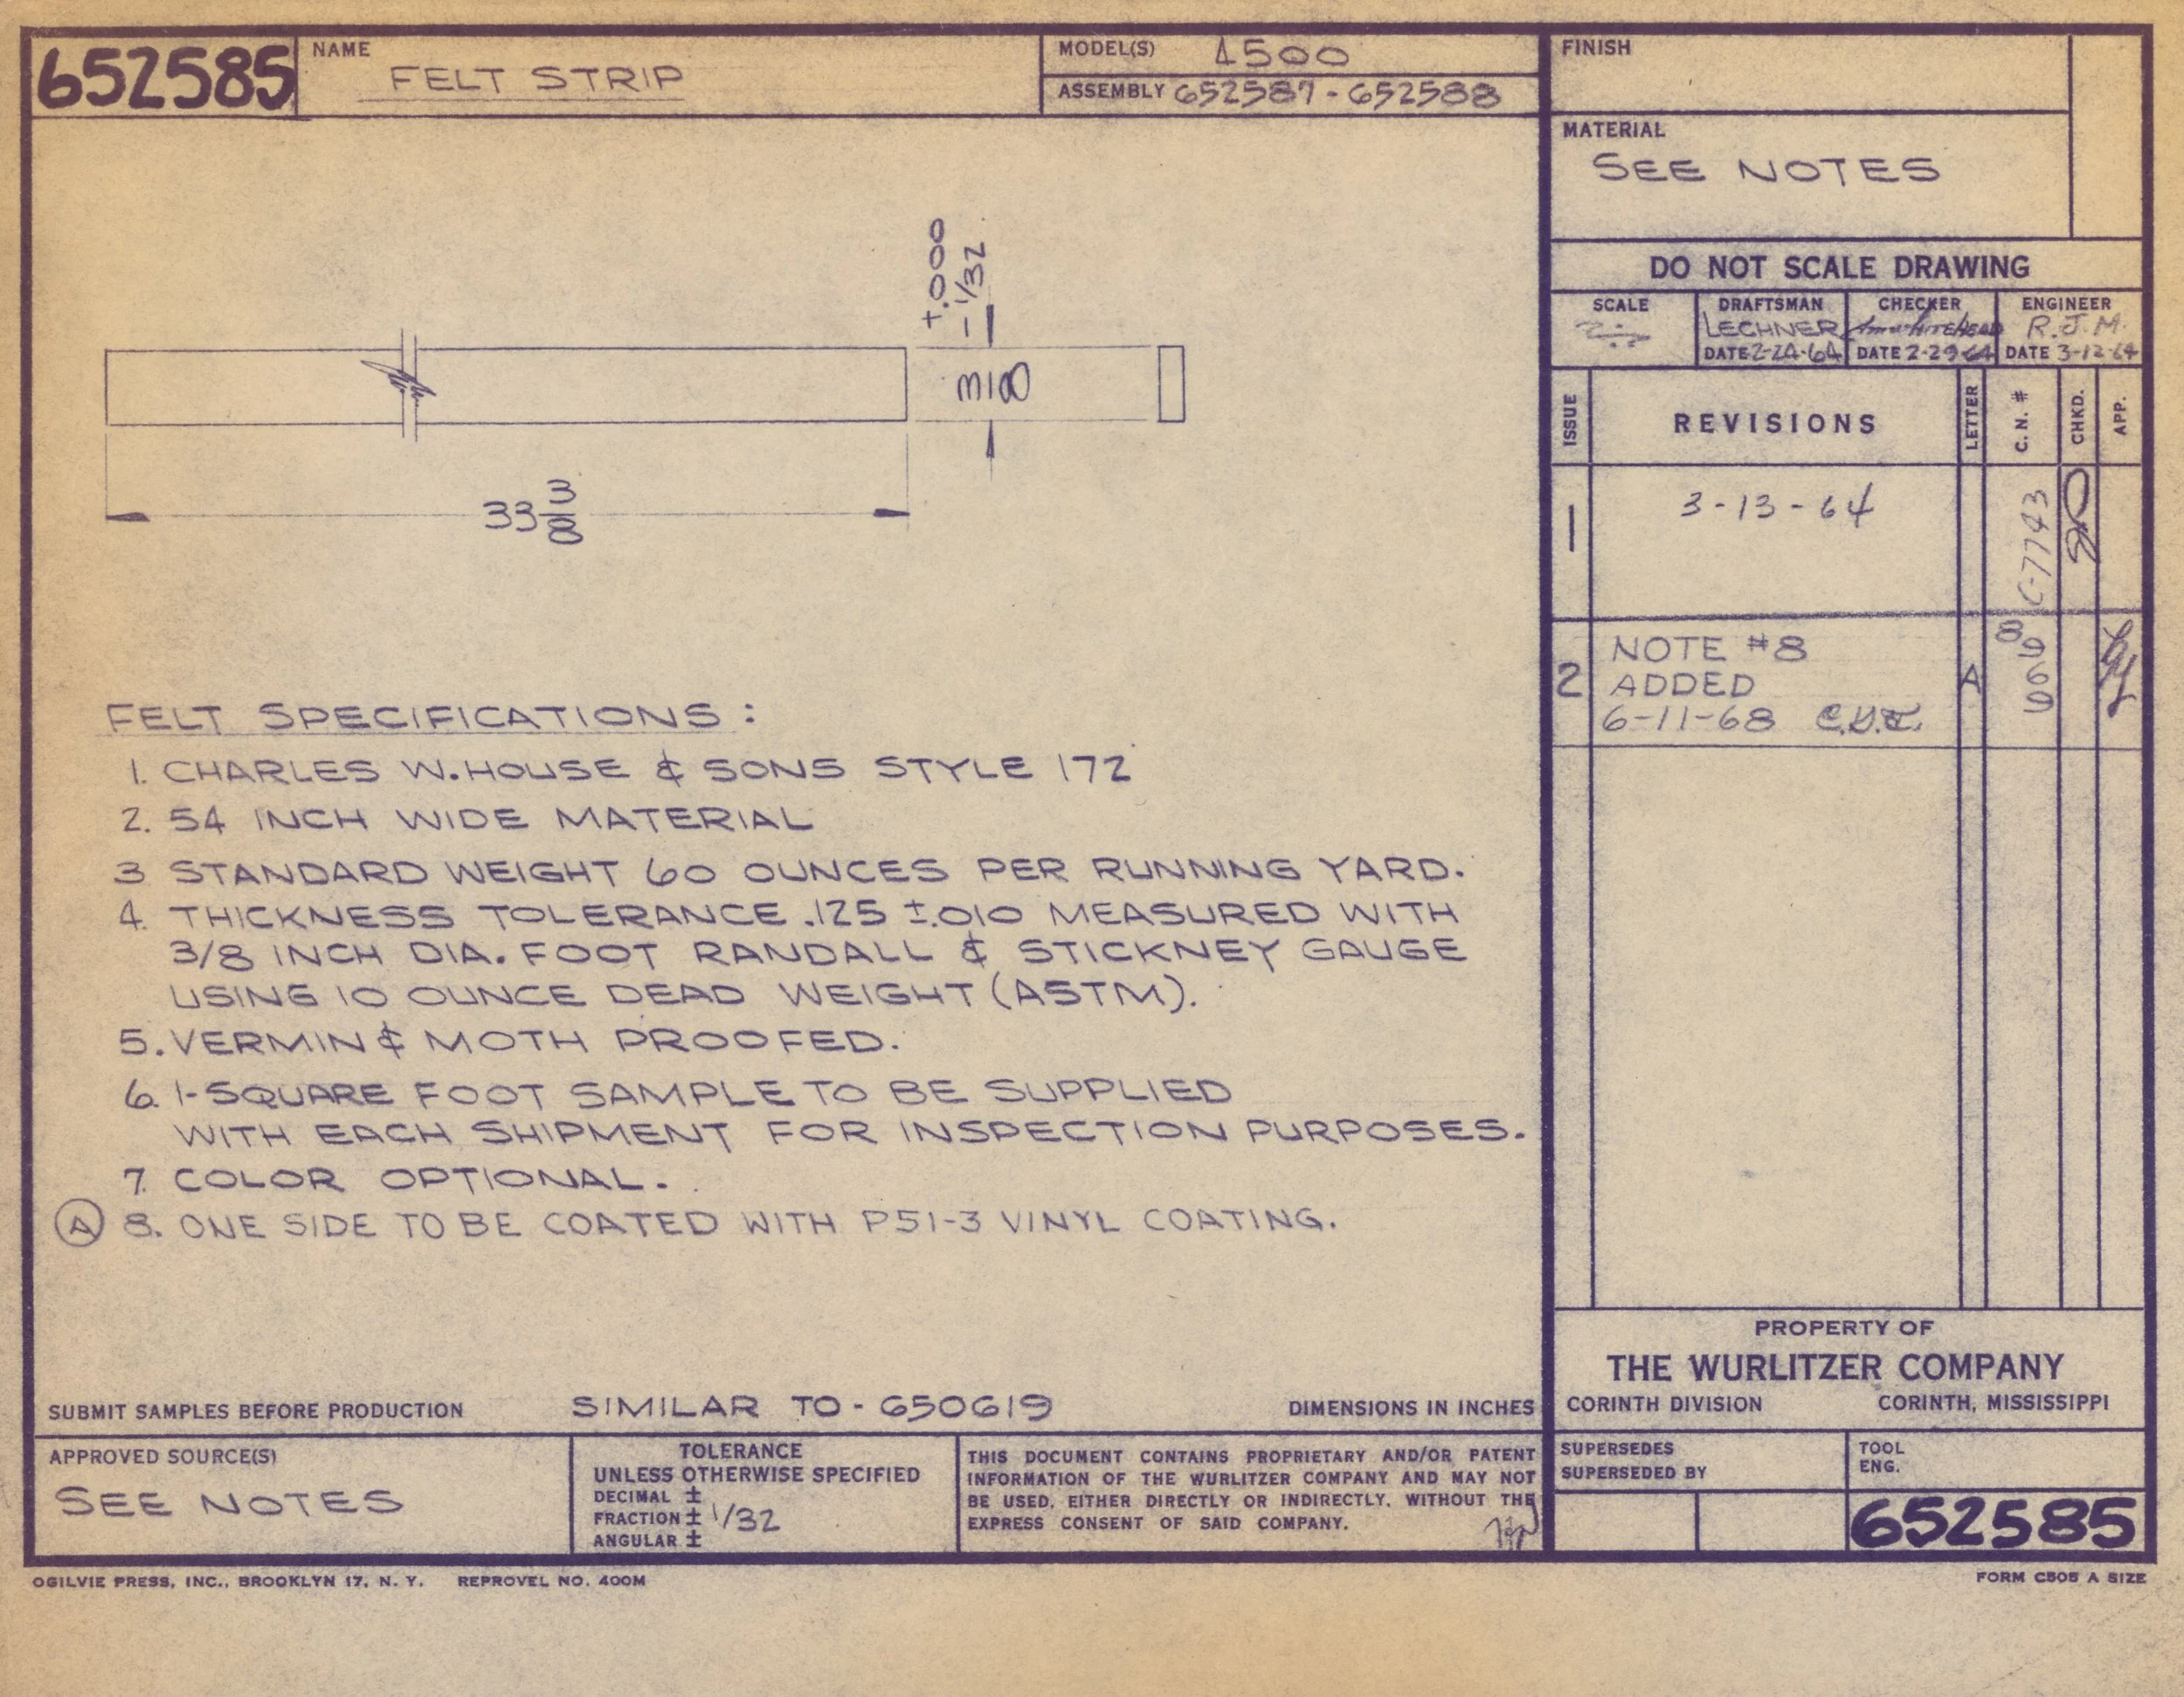 652585
NAME
FELT STRIP
MODEL(S) 4500
ASSEMBLY 652587 - 652588
FINISH
MATERIAL
SEE NOTES
DO NOT SCALE DRAWING
SCALE
DRAFTSMAN
LECHNER
DATE 2-24-64
CHECKER
DATE 2-29-64
ENGINEER
R.J.M.
DATE 3-12-64
ISSUE
REVISIONS
LETTER
C. N. #
CHKD.
APP.
1
3-13-64
C-7743
2
NOTE #8
ADDED
6-11-68
A
8969
+.000
-1/32
3/8
33 3/8
FELT SPECIFICATIONS :
1. CHARLES W. HOUSE & SONS STYLE 172
2. 54 INCH WIDE MATERIAL
3 STANDARD WEIGHT 60 OUNCES PER RUNNING YARD.
4. THICKNESS TOLERANCE .125 ±.010 MEASURED WITH
3/8 INCH DIA. FOOT RANDALL & STICKNEY GAUGE
USING 10 OUNCE DEAD WEIGHT (ASTM).
5. VERMIN & MOTH PROOFED.
6. 1-SQUARE FOOT SAMPLE TO BE SUPPLIED
WITH EACH SHIPMENT FOR INSPECTION PURPOSES.
7. COLOR OPTIONAL.
A 8. ONE SIDE TO BE COATED WITH P51-3 VINYL COATING.
SUBMIT SAMPLES BEFORE PRODUCTION
SIMILAR TO - 650619
DIMENSIONS IN INCHES
APPROVED SOURCE(S)
SEE NOTES
TOLERANCE
UNLESS OTHERWISE SPECIFIED
DECIMAL ±
FRACTION ± 1/32
ANGULAR ±
THIS DOCUMENT CONTAINS PROPRIETARY AND/OR PATENT
INFORMATION OF THE WURLITZER COMPANY AND MAY NOT
BE USED, EITHER DIRECTLY OR INDIRECTLY, WITHOUT THE
EXPRESS CONSENT OF SAID COMPANY.
PROPERTY OF
THE WURLITZER COMPANY
CORINTH DIVISION CORINTH, MISSISSIPPI
SUPERSEDES
SUPERSEDED BY
TOOL
ENG.
652585
OGILVIE PRESS, INC., BROOKLYN 17, N. Y. REPROVEL NO. 400M
FORM C505 A SIZE